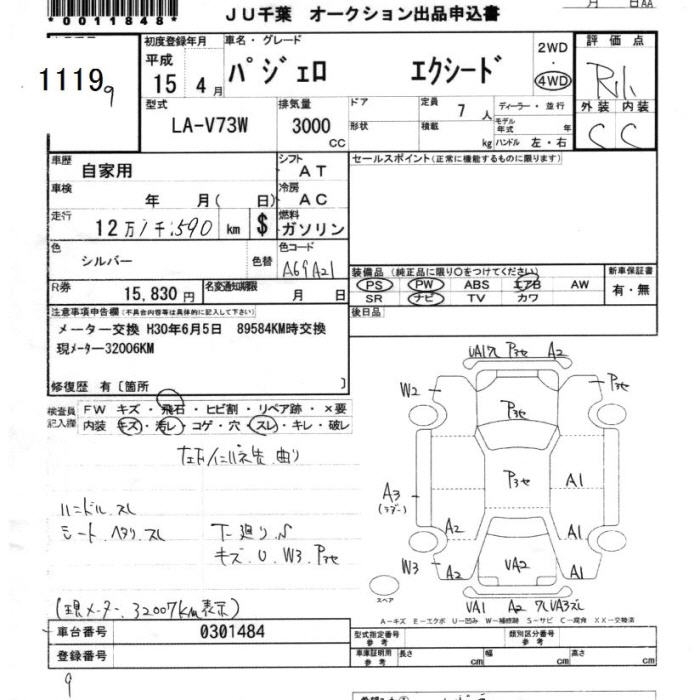 月 日AA
*0011848*
JU千葉 オークション出品申込書
1119 9
初度登録年月
平成
15 4月
車名・グレード
パジェロ エクシード
2WD
・
4WD
評価点
外装 内装
C C
型式
LA-V73W
排気量
3000 CC
ドア
形状
定員 7 人
積載 kg
ディーラー・並行
モデル年式 年
ハンドル 左・右
車歴
自家用
シフト
AT
セールスポイント(正常に機能するものに限ります)
車検
年 月( 日)
冷房
AC
走行
12万1千590 km $
燃料
ガソリン
色
シルバー
色替
色コード
A69A21
装備品(純正品に限り○をつけてください)
PS PW ABS エアB AW
SR ナビ TV カワ
新車保証書
有・無
R券
15,830円
名変通知期限
月 日
後日品
注意事項申告欄(不具合内容等は具体的に記入して下さい)
メーター交換 H30年6月5日 89584KM時交換
現メーター32006KM
修復歴 有〔箇所 〕
検査員記入欄
FW キズ・飛石・ヒビ割・リペア跡・×要
内装 キズ・汚レ・コゲ・穴・スレ・キレ・破レ
ハンドル スレ
シート ヘタリ スレ
下廻り
キズ U W3
(現メーター 32007km表示)
A2
W2
A3
A1
A2
A1
W3
A2
UA2
A1
スペア
UA1 A2
A−キズ E−エクボ U−凹み W−補修跡 S−サビ C−腐食 XX−交換済
車台番号 0301484
登録番号
型式指定番号
参考
類別区分番号
参考
車庫証明用
参考
長さ cm
幅 cm
高さ cm
9